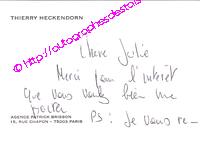 THIERRY HECKENDORN
Chère Julie
Merci pour l'intérêt
que vous voulez bien me
porter
PS: Je vous re-
AGENCE PATRICK BRISSON
15, RUE CHAPON - 75003 PARIS
© http://autographesdestars